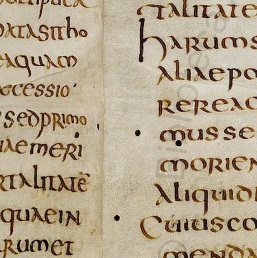 patasitho
eaquam
recessio
sedprimo
uaemeri
rtalitate
quaein
rumet
talitate
harums
aliaepo
rereac
musse
morien
aliquid
cuiusco
menda